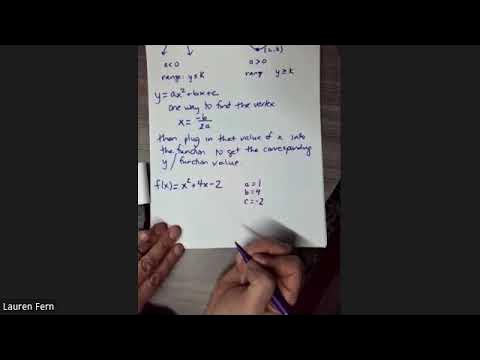 (h,k)
a<0 a>0
range: y≤k range y≥k
y=ax²+bx+c
one way to find the vertex
x = -b/2a
then plug in that value of x into
the function to get the corresponding
y/function value.
f(x)=x²+4x-2 a=1
b=4
c=-2
Lauren Fern